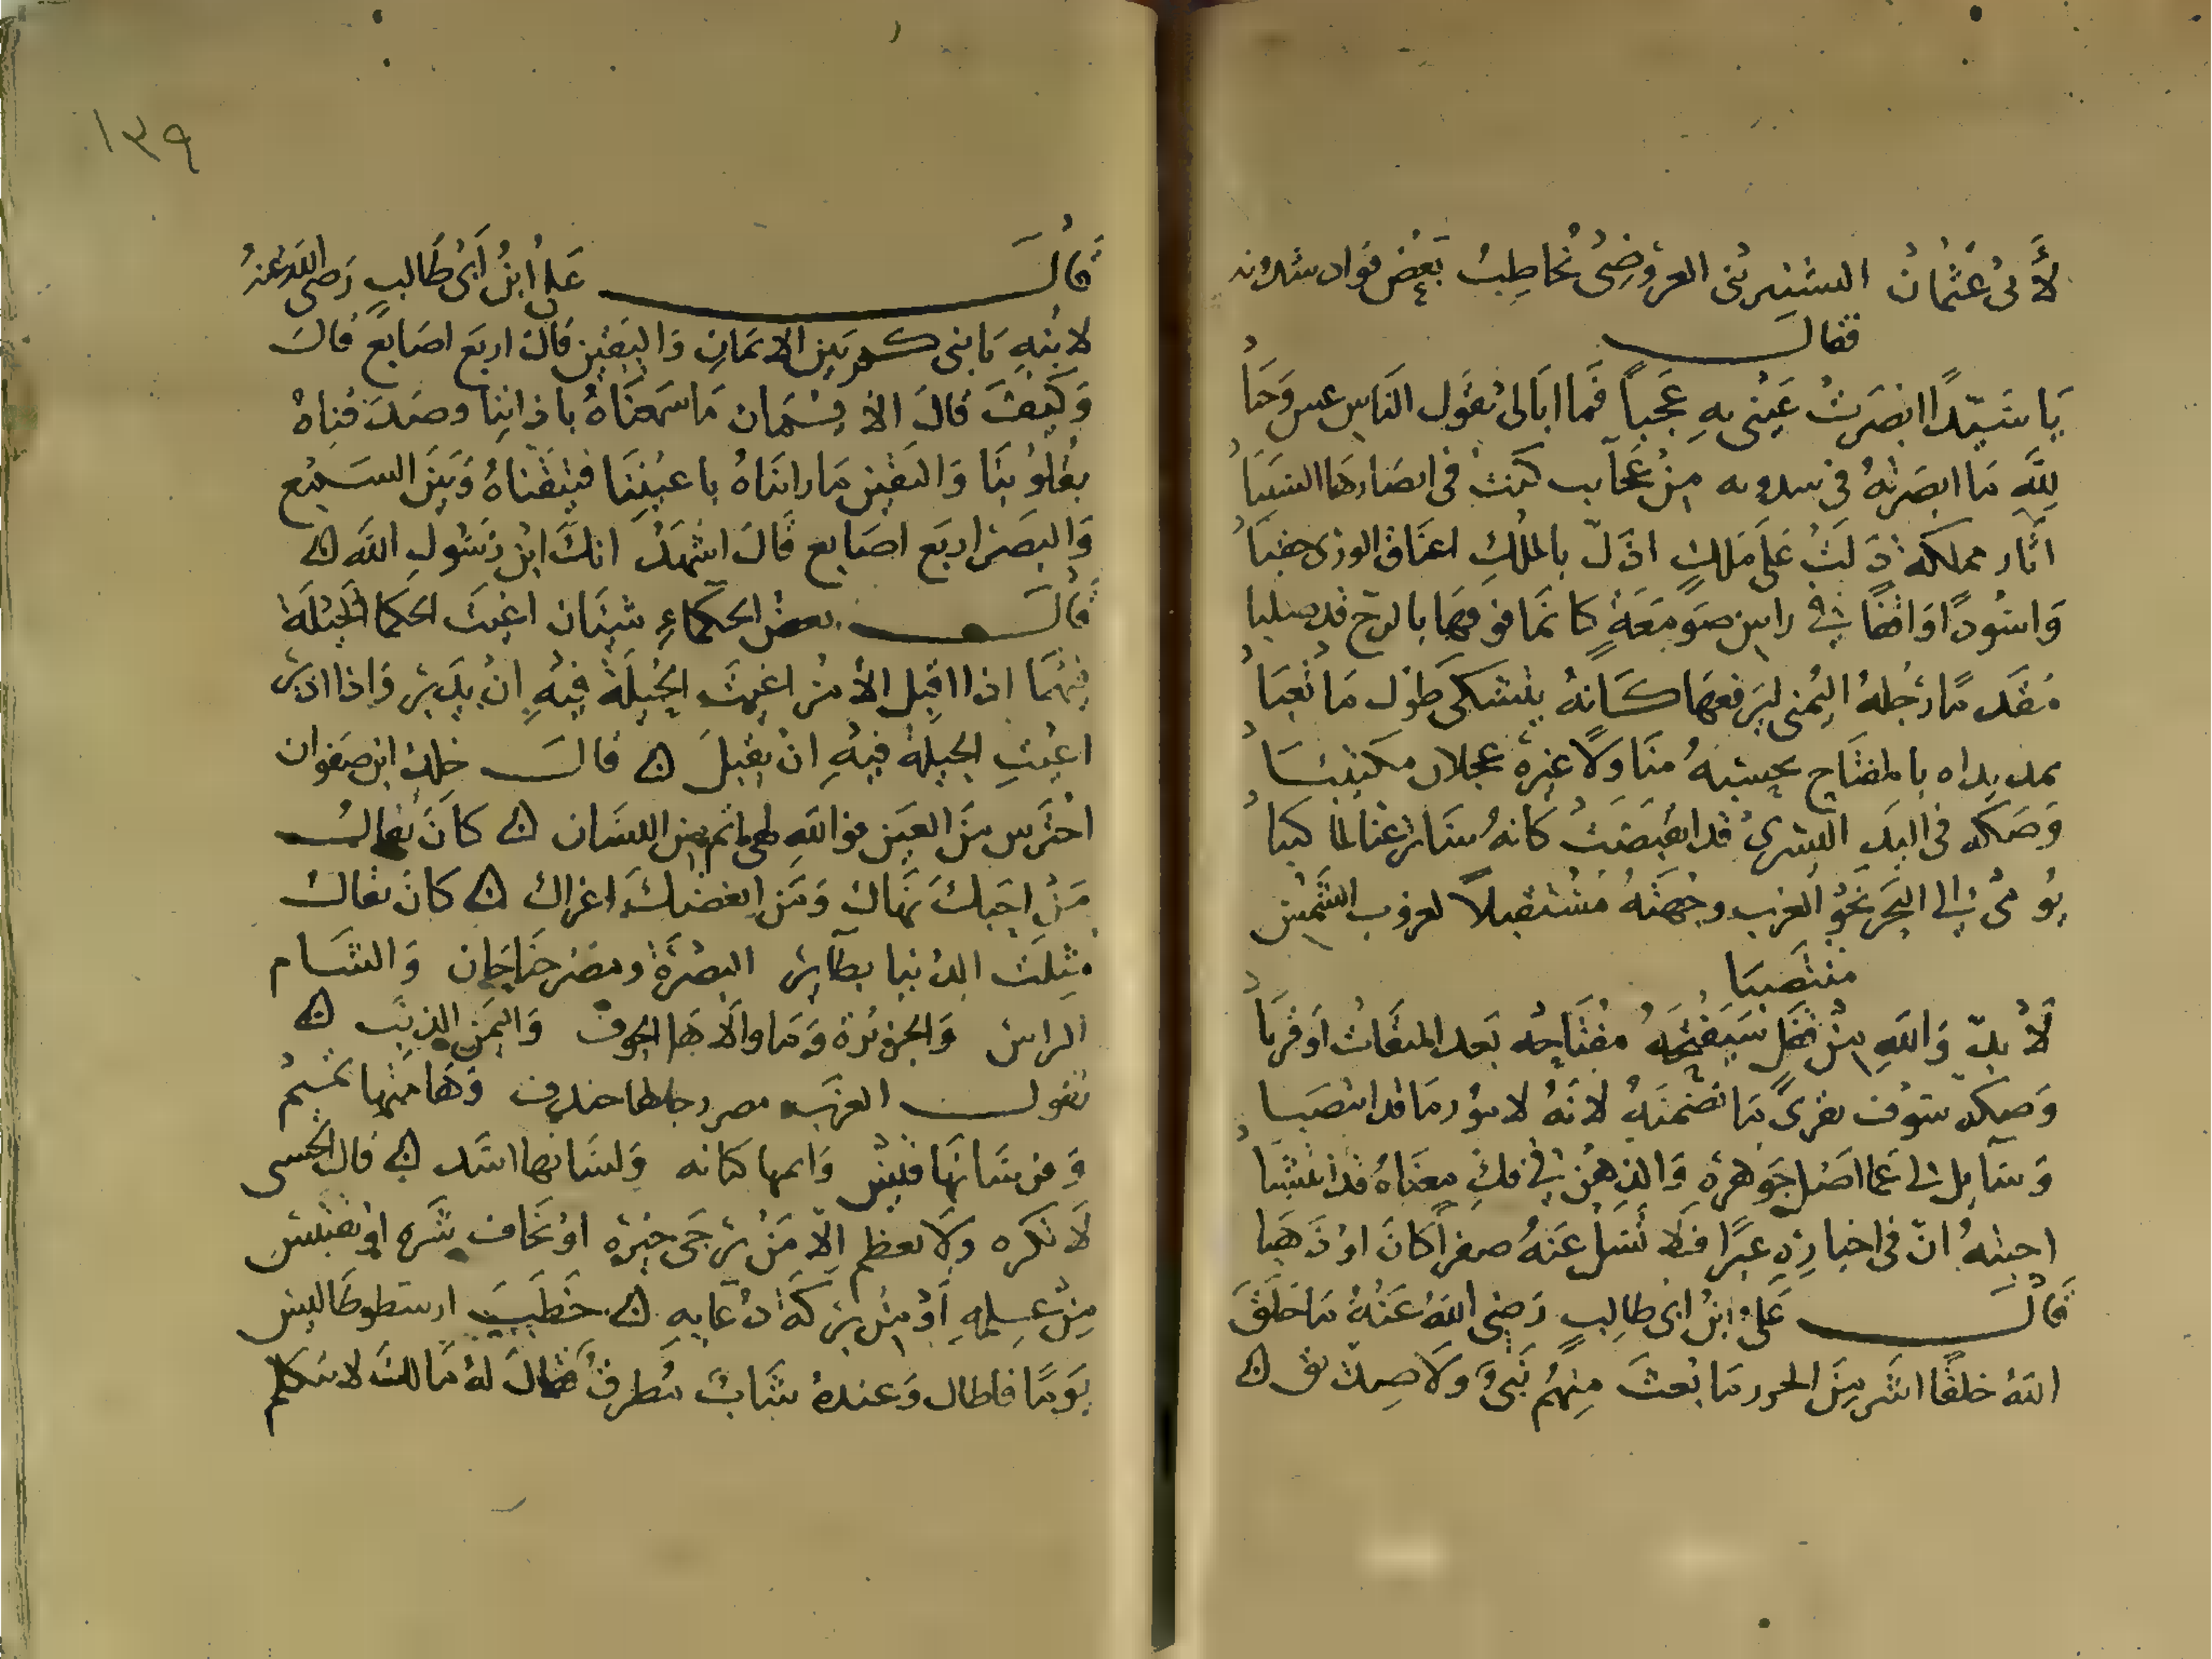 لأبى عثمان الشنترينى العروضى تخاطب بعض قواد شذونه
فقال
يا سيدا ابصرت عينى به عجبا فما ابالى بقول الناس
لله ما ابصرته فى شدونه من عجايب كنت فى ابصارها السببا
اثار مملكة دلت على ملك اذل بالملك اعناق الورى حقبا
واسودا واقفا فى راس صومعة كانما فوقها بالريح قد صلبا
مقدما رجله اليمنى ليرفعها كانه يتشكى طول ما تعبا
يمد يداه بالمفتاح يحسبه منا ولا غيره عجلان مكتئبا
وصكه فى اليد اليسرى قد انقبضت كانه
يومى الى البحر نحو الغرب وجهته مستقبلا لغروب الشمس
منتصبا
لا بد والله من قفل سيفتحه مفتاحه بعد الميقات او قربا
وصكه سوف يقرى ما تضمنه لانه لامور ما قد انتصبا
وسايل لى عما اصل جوهره والذهن فى فك معناه قد انتشبا
اجبته ان فى اخباره عبرا فلا تسل عنه صفرا كان او ذهبا
قال على ابن ابى طالب رضى الله عنه ما خلق
الله خلقا اشر من ما بعث منهم نبى ولا صديق
١٣٩
قال على ابن ابى طالب رضى الله عنه
لابنه يا بنى كم بين الايمان واليقين قال اربع اصابع قال
وكيف قال الايمان ما سمعناه باذاننا وصدقناه
بقلوبنا واليقين ما رايناه باعيننا فتيقناه وبين السمع
والبصر اربع اصابع قال اشهد انك ابن رسول الله
قال بعض الحكماء شيئان اعيت الحكما الحيلة
فيهما اذا اقبل الامر اعيت الحيلة فيه ان يدبر واذا ادبر
اعيت الحيلة فيه ان يقبل قال خلد ابن صفوان
احترس من العين فوالله لهى انم من اللسان كان يقال
من احبك نهاك ومن ابغضك اغراك كان يقال
مثلت الدنيا بطاير البصرة ومصر جناحان والشام
الراس والجزيرة وما والاها الجوف واليمن الذنب
تقول العرب مضر خندف وهامتها تميم
وفرسانها قيس وايمها كنانه ولسانها اسد قال الحسن
لا تكره ولا تعظم الا من ترجى خيره او تخاف شره او تقتبس
من علمه او من بركة دعايه خطب ارسطوطاليس
يوما فاطال وعنده شاب مطرق فقال له مالك لا تتكلم